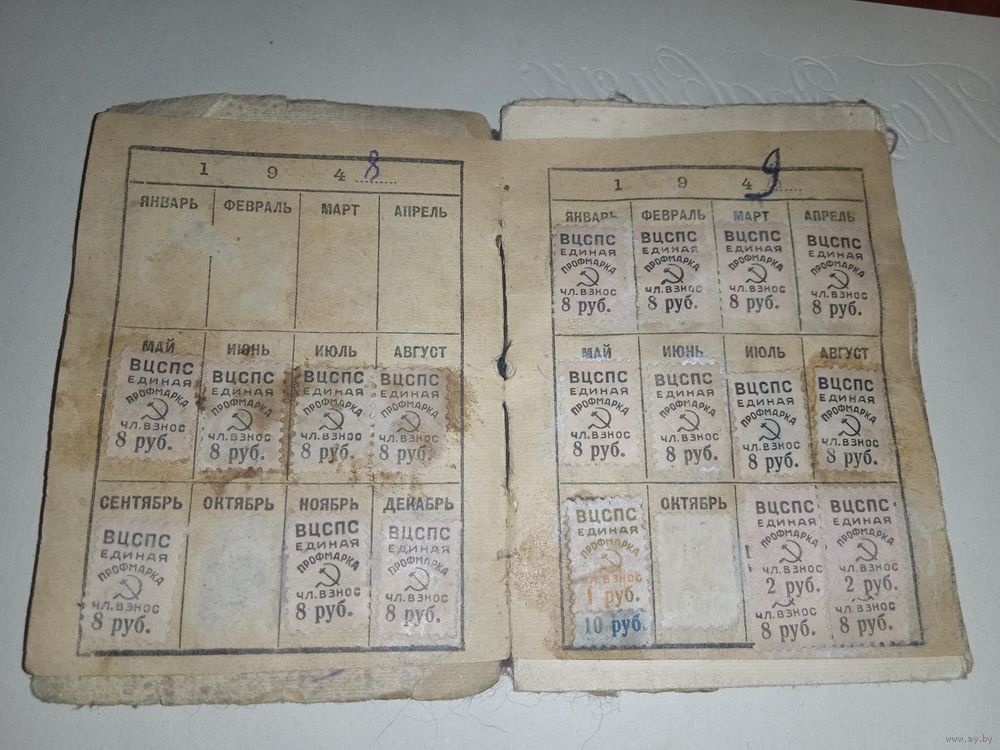 1 9 4 8
ЯНВАРЬ ФЕВРАЛЬ МАРТ АПРЕЛЬ
МАЙ ИЮНЬ ИЮЛЬ АВГУСТ
ВЦСПС ВЦСПС ВЦСПС ВЦСПС
ЕДИНАЯ ЕДИНАЯ ЕДИНАЯ ЕДИНАЯ
ПРОФМАРКА ПРОФМАРКА ПРОФМАРКА ПРОФМАРКА
ЧЛ. ВЗНОС ЧЛ. ВЗНОС ЧЛ. ВЗНОС ЧЛ. ВЗНОС
8 руб. 8 руб. 8 руб. 8 руб.
СЕНТЯБРЬ ОКТЯБРЬ НОЯБРЬ ДЕКАБРЬ
ВЦСПС ВЦСПС ВЦСПС
ЕДИНАЯ ЕДИНАЯ ЕДИНАЯ
ПРОФМАРКА ПРОФМАРКА ПРОФМАРКА
ЧЛ. ВЗНОС ЧЛ. ВЗНОС ЧЛ. ВЗНОС
8 руб. 8 руб. 8 руб.
1 9 4 9
ЯНВАРЬ ФЕВРАЛЬ МАРТ АПРЕЛЬ
ВЦСПС ВЦСПС ВЦСПС ВЦСПС
ЕДИНАЯ ЕДИНАЯ ЕДИНАЯ ЕДИНАЯ
ПРОФМАРКА ПРОФМАРКА ПРОФМАРКА ПРОФМАРКА
ЧЛ. ВЗНОС ЧЛ. ВЗНОС ЧЛ. ВЗНОС ЧЛ. ВЗНОС
8 руб. 8 руб. 8 руб. 8 руб.
МАЙ ИЮНЬ ИЮЛЬ АВГУСТ
ВЦСПС ВЦСПС ВЦСПС ВЦСПС
ЕДИНАЯ ЕДИНАЯ ЕДИНАЯ ЕДИНАЯ
ПРОФМАРКА ПРОФМАРКА ПРОФМАРКА ПРОФМАРКА
ЧЛ. ВЗНОС ЧЛ. ВЗНОС ЧЛ. ВЗНОС ЧЛ. ВЗНОС
8 руб. 8 руб. 8 руб. 8 руб.
ОКТЯБРЬ
ВЦСПС ВЦСПС ВЦСПС
ЕДИНАЯ ЕДИНАЯ ЕДИНАЯ
ПРОФМАРКА ПРОФМАРКА ПРОФМАРКА
ЧЛ. ВЗНОС ЧЛ. ВЗНОС ЧЛ. ВЗНОС
1 руб. 2 руб. 2 руб.
ЧЛ. ВЗНОС ЧЛ. ВЗНОС
10 руб. 8 руб. 8 руб.
www.ay.by